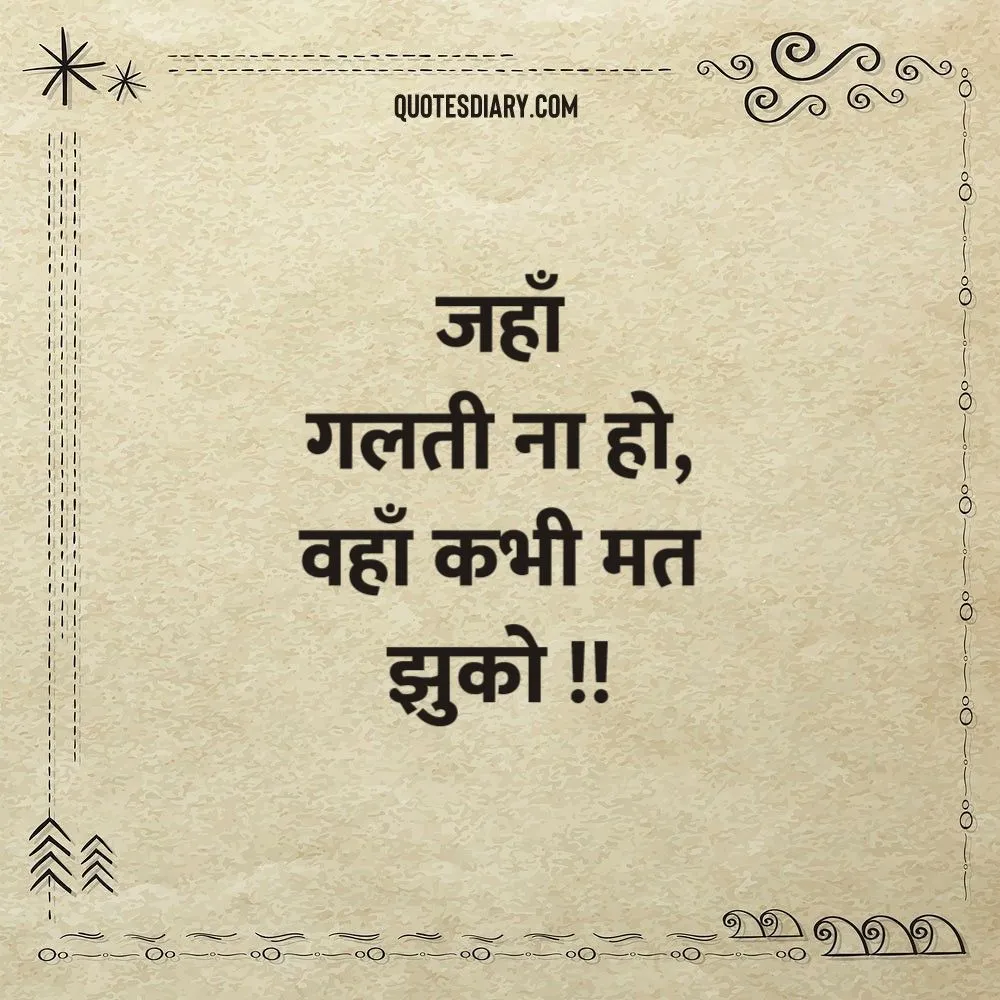 QUOTESDIARY.COM
जहाँ
गलती ना हो,
वहाँ कभी मत
झुको !!